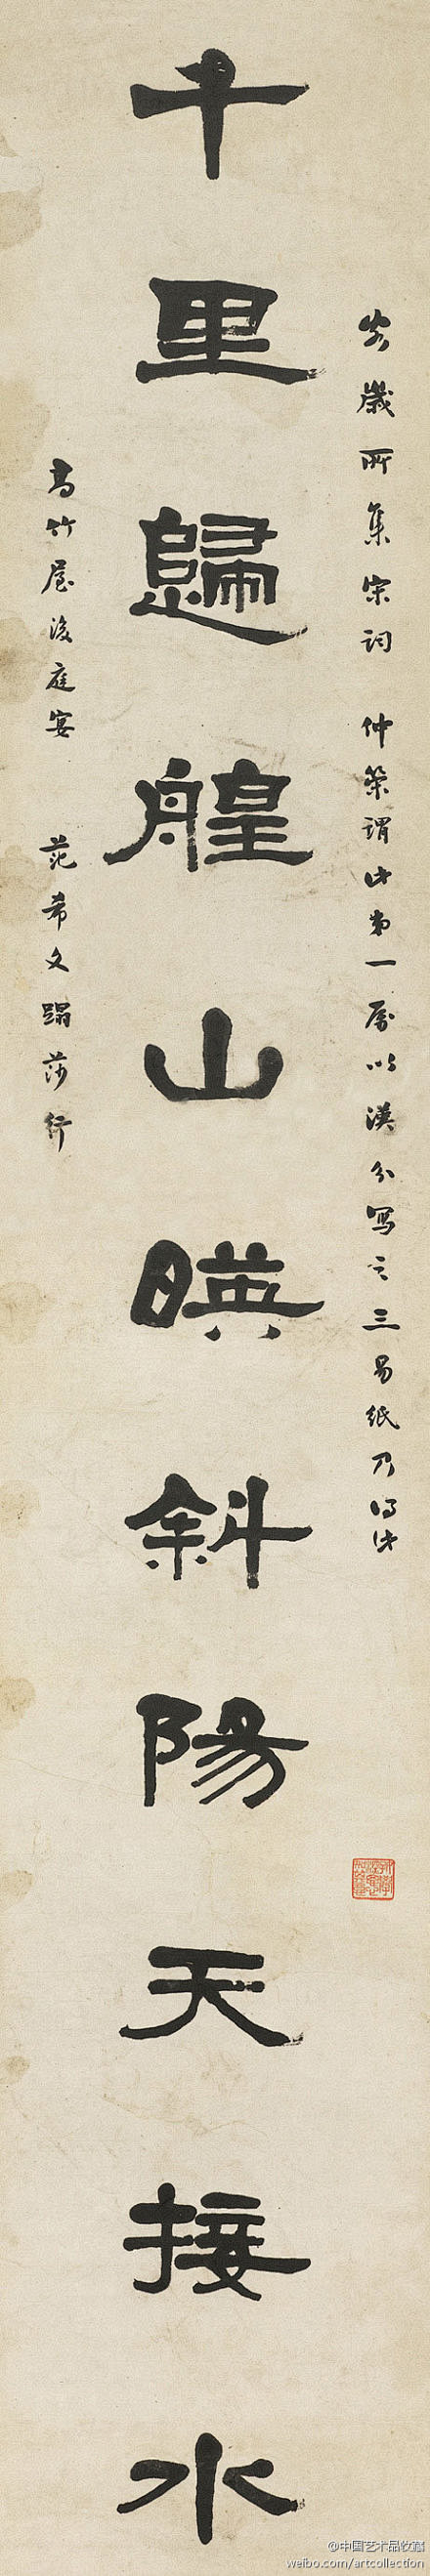 客歲所集宋詞　仲策謂此弟一屬以漢分寫之三易紙乃得此
千里歸艎山暎斜陽天接水
高竹屋後庭宴　范希文蹋莎行
@中国艺术品收藏
weibo.com/artcollection